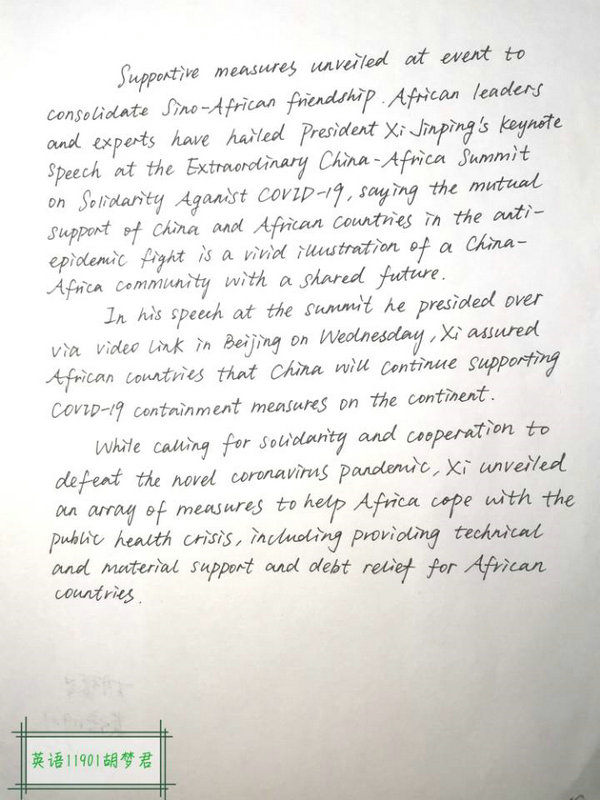 Supportive measures unveiled at event to
consolidate Sino-African friendship. African leaders
and experts have hailed President Xi Jinping's keynote
speech at the Extraordinary China-Africa Summit
on Solidarity Aganist COVID-19, saying the mutual
support of China and African Countries in the anti-
epidemic fight is a vivid illustration of a China-
Africa community with a shared future.
In his speech at the summit he presided over
via video link in Beijing on Wednesday, Xi assured
African countries that China will continue supporting
COVID-19 containment measures on the continent.
While calling for solidarity and cooperation to
defeat the novel coronavirus pandemic, Xi unveiled
an array of measures to help Africa cope with the
public health crisis, including providing technical
and material support and debt relief for African
countries.
英语11901胡梦君